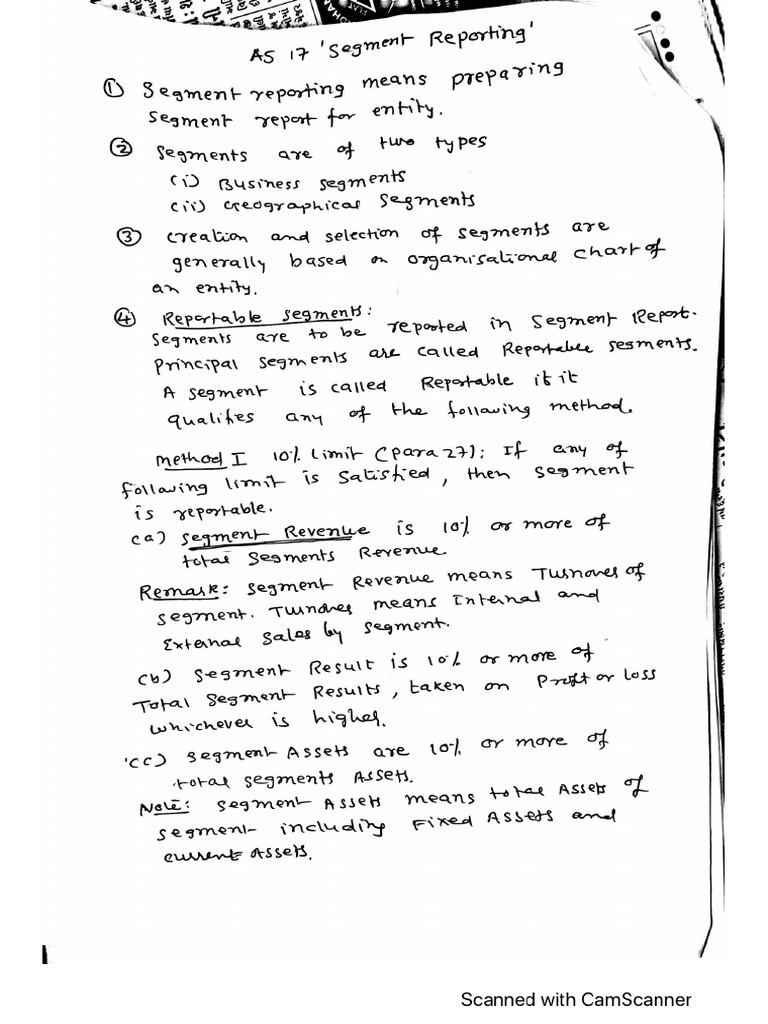 AS 17 'Segment Reporting'
① Segment reporting means preparing
segment report for entity.
② Segments are of two types
(i) Business segments
(ii) Geographical Segments
③ Creation and selection of segments are
generally based on organisational chart of
an entity.
④ Reportable segments:
Segments are to be reported in Segment Report.
Principal segments are called Reportable segments.
A segment is called Reportable if it
qualifies any of the following method.
Method I 10% Limit (Para 27): If any of
following limit is satisfied, then segment
is reportable.
(a) Segment Revenue is 10% or more of
total segments Revenue.
Remark: Segment Revenue means Turnover of
segment. Turnover means Internal and
External sales by segment.
(b) Segment Result is 10% or more of
Total Segment Results, taken on Profit or Loss
whichever is higher.
(c) Segment Assets are 10% or more of
total segments Assets.
Note: Segment Assets means total Assets of
segment including Fixed Assets and
current Assets.
Scanned with CamScanner